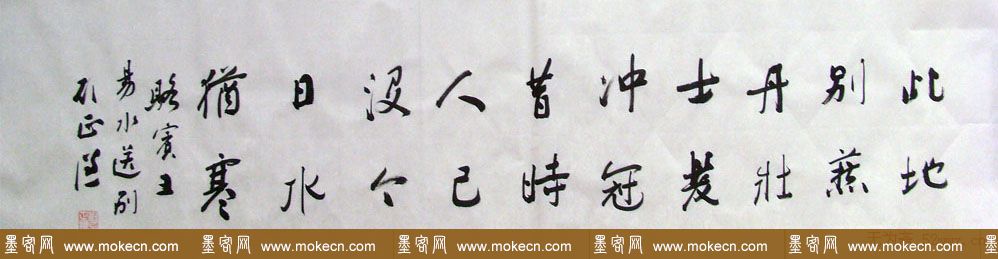 此地
别燕
丹壮
士髮
冲冠
昔時
人已
没今
日水
猶寒
駱賓王
易水送别
墨客网 www.mokecn.com 墨客网 www.mokecn.com 墨客网 www.mokecn.com 墨客网 www.mokecn.com 墨客网 www.mokecn.com